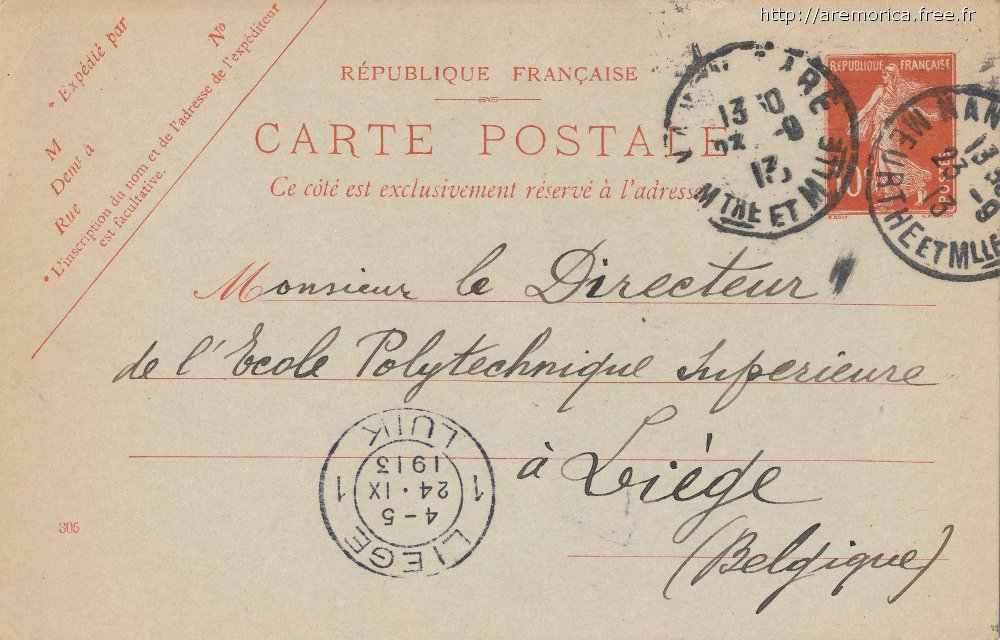 http://aremorica.free.fr
* Expédié par
M
Demt à
Rue
N°
* L'inscription du nom et de l'adresse de l'expéditeur
est facultative.
RÉPUBLIQUE FRANÇAISE
CARTE POSTALE
Ce côté est exclusivement réservé à l'adresse
GARE
13 30
-9
13
MTHE ET MLLE
RÉPUBLIQUE FRANÇAISE
10c
POSTES
NAN
13 30
23 -9
13
MEURTHE ET MLLE
Monsieur le Directeur
de l'Ecole Polytechnique Superieure
à Liége
(Belgique)
LIEGE
4-5
24·IX
1913
1 1
LUIK
305